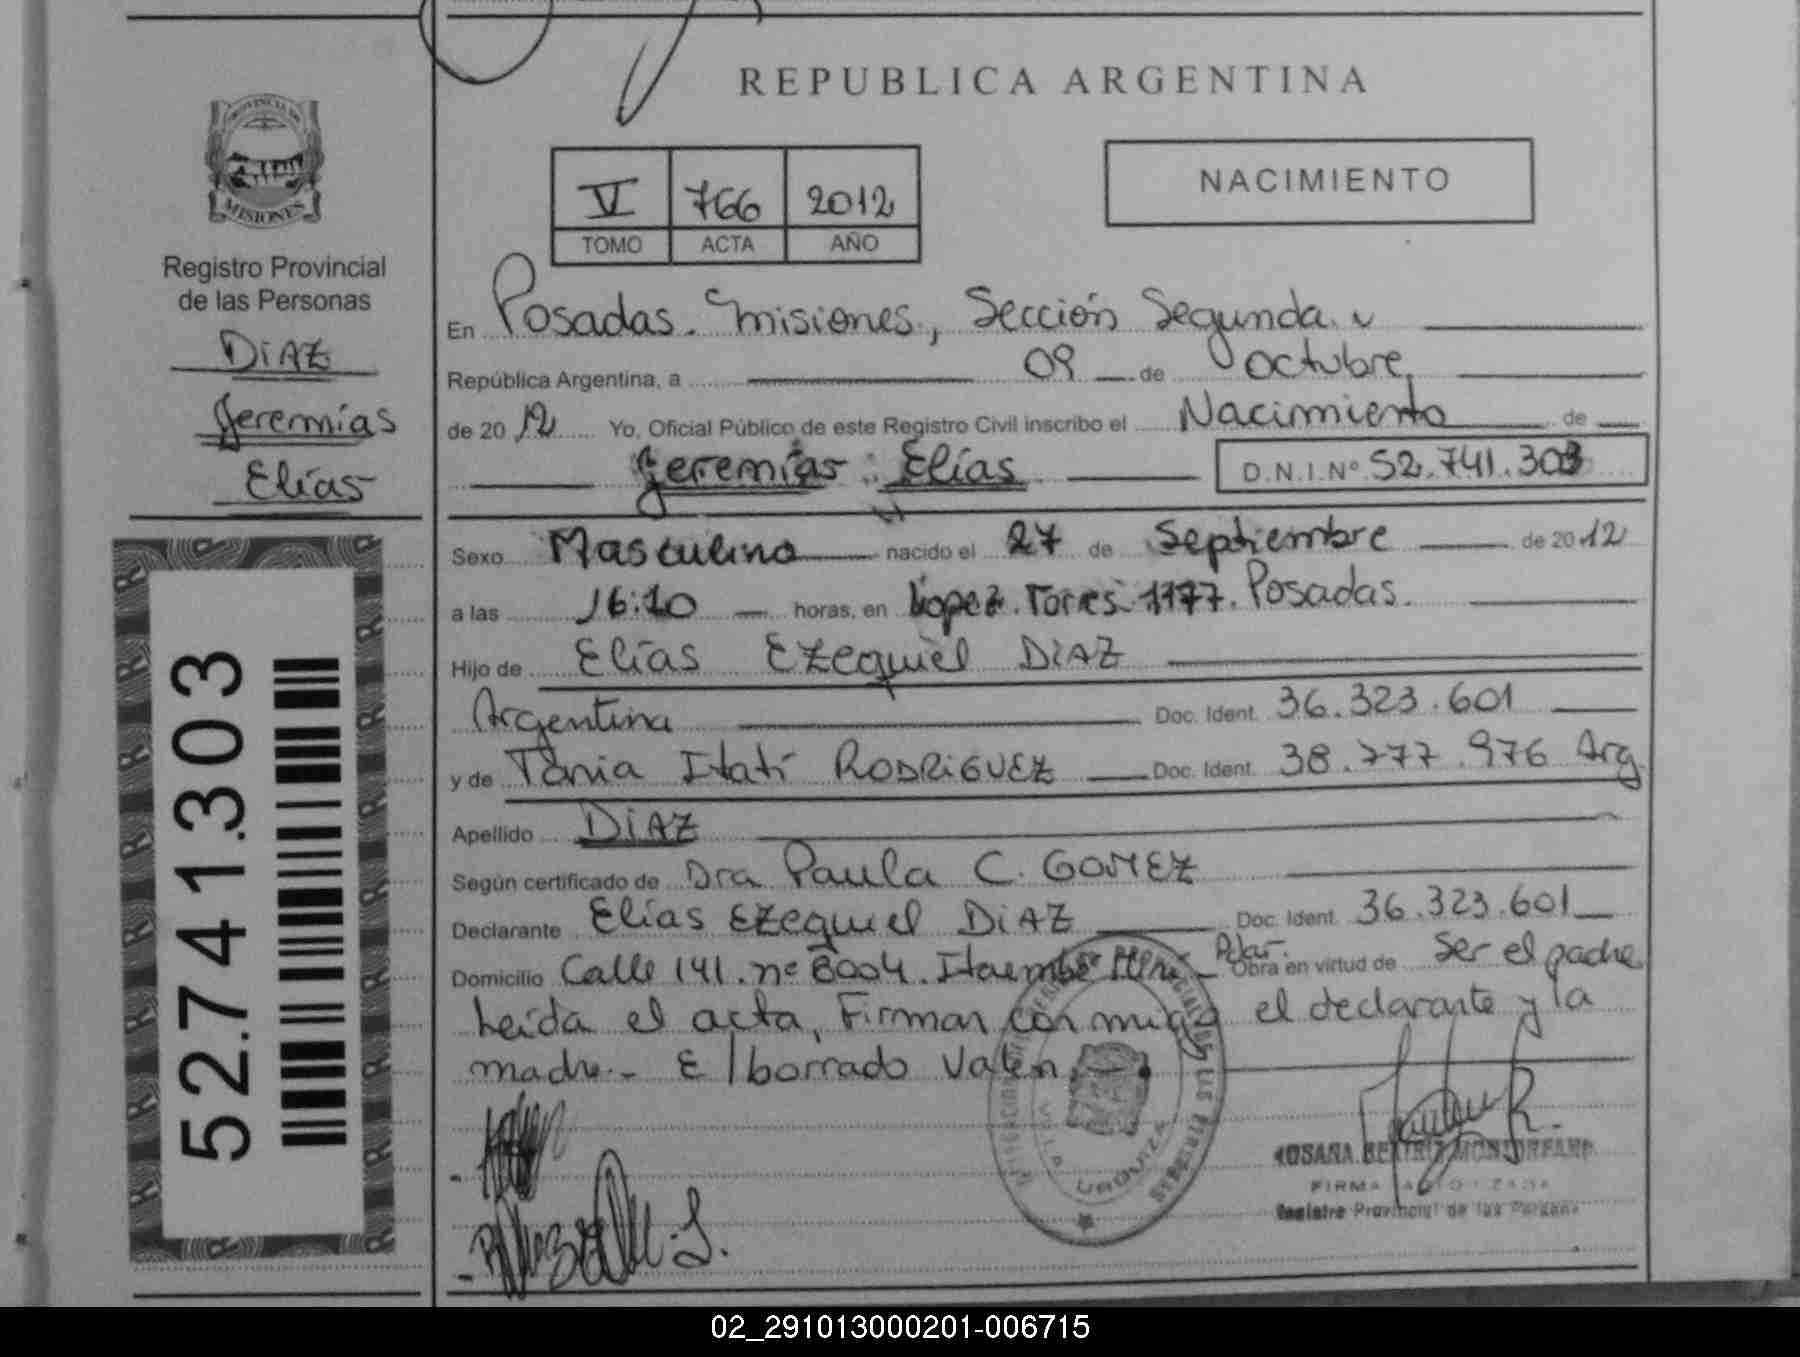 REPUBLICA ARGENTINA
PROVINCIA DE
MISIONES
Registro Provincial
de las Personas
DiAZ
Jeremías
Elías
52.741.303
V 766 2012
TOMO ACTA AÑO
NACIMIENTO
En Posadas. Misiones, Sección Segunda
República Argentina, a 09 de octubre,
de 2012 Yo, Oficial Público de este Registro Civil inscribo el Nacimiento de
Jeremías Elías D.N.I.Nº 52.741.303
Sexo Masculino nacido el 27 de Septiembre de 2012
a las 16:10 horas, en Lopez Torres 1177. Posadas.
Hijo de Elías Ezequiel DIAZ
Argentina Doc. Ident. 36.323.601
y de Tania Itatí RODRIGUEZ Doc. Ident. 38.777.976 Arg.
Apellido DiAZ
Según certificado de Dra Paula C. GOMEZ
Declarante Elías Ezequiel DiAZ Doc. Ident. 36.323.601
Domicilio Calle 141. nº 8004. Itaembé Miní Obra en virtud de Ser el padre
Leída el acta, Firman conmigo el declarante y la
madre.- E/borrado Valen
URQUIZA
ROSANA BEATRIZ MONTORFANO
FIRMA AUTORIZADA
Registro Provincial de las Personas
02_291013000201-006715